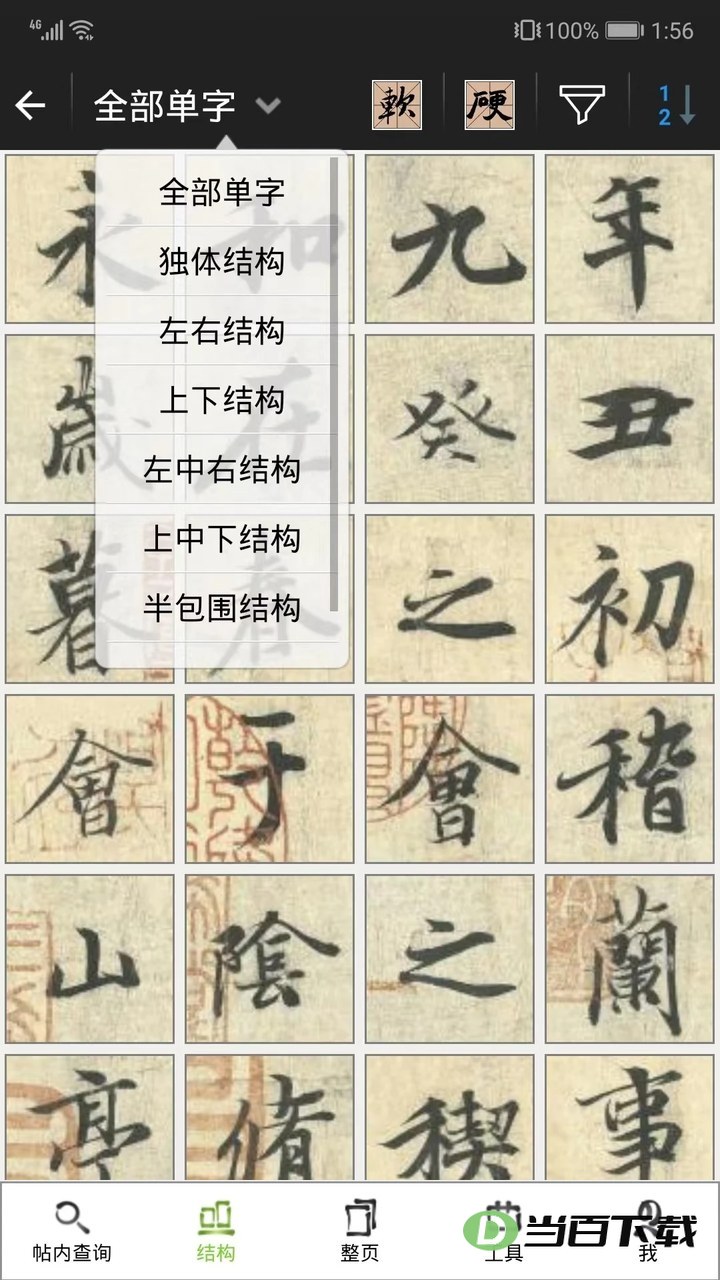 4G 100% 1:56
全部单字 軟 硬 1 2
全部单字
独体结构
左右结构
上下结构
左中右结构
上中下结构
半包围结构
永 和 九 年
歲 在 癸 丑
暮 春 之 初
會 于 會 稽
山 陰 之 蘭
亭 脩 稧 事
帖内查询 结构 整页 工具 我
D 当百下载